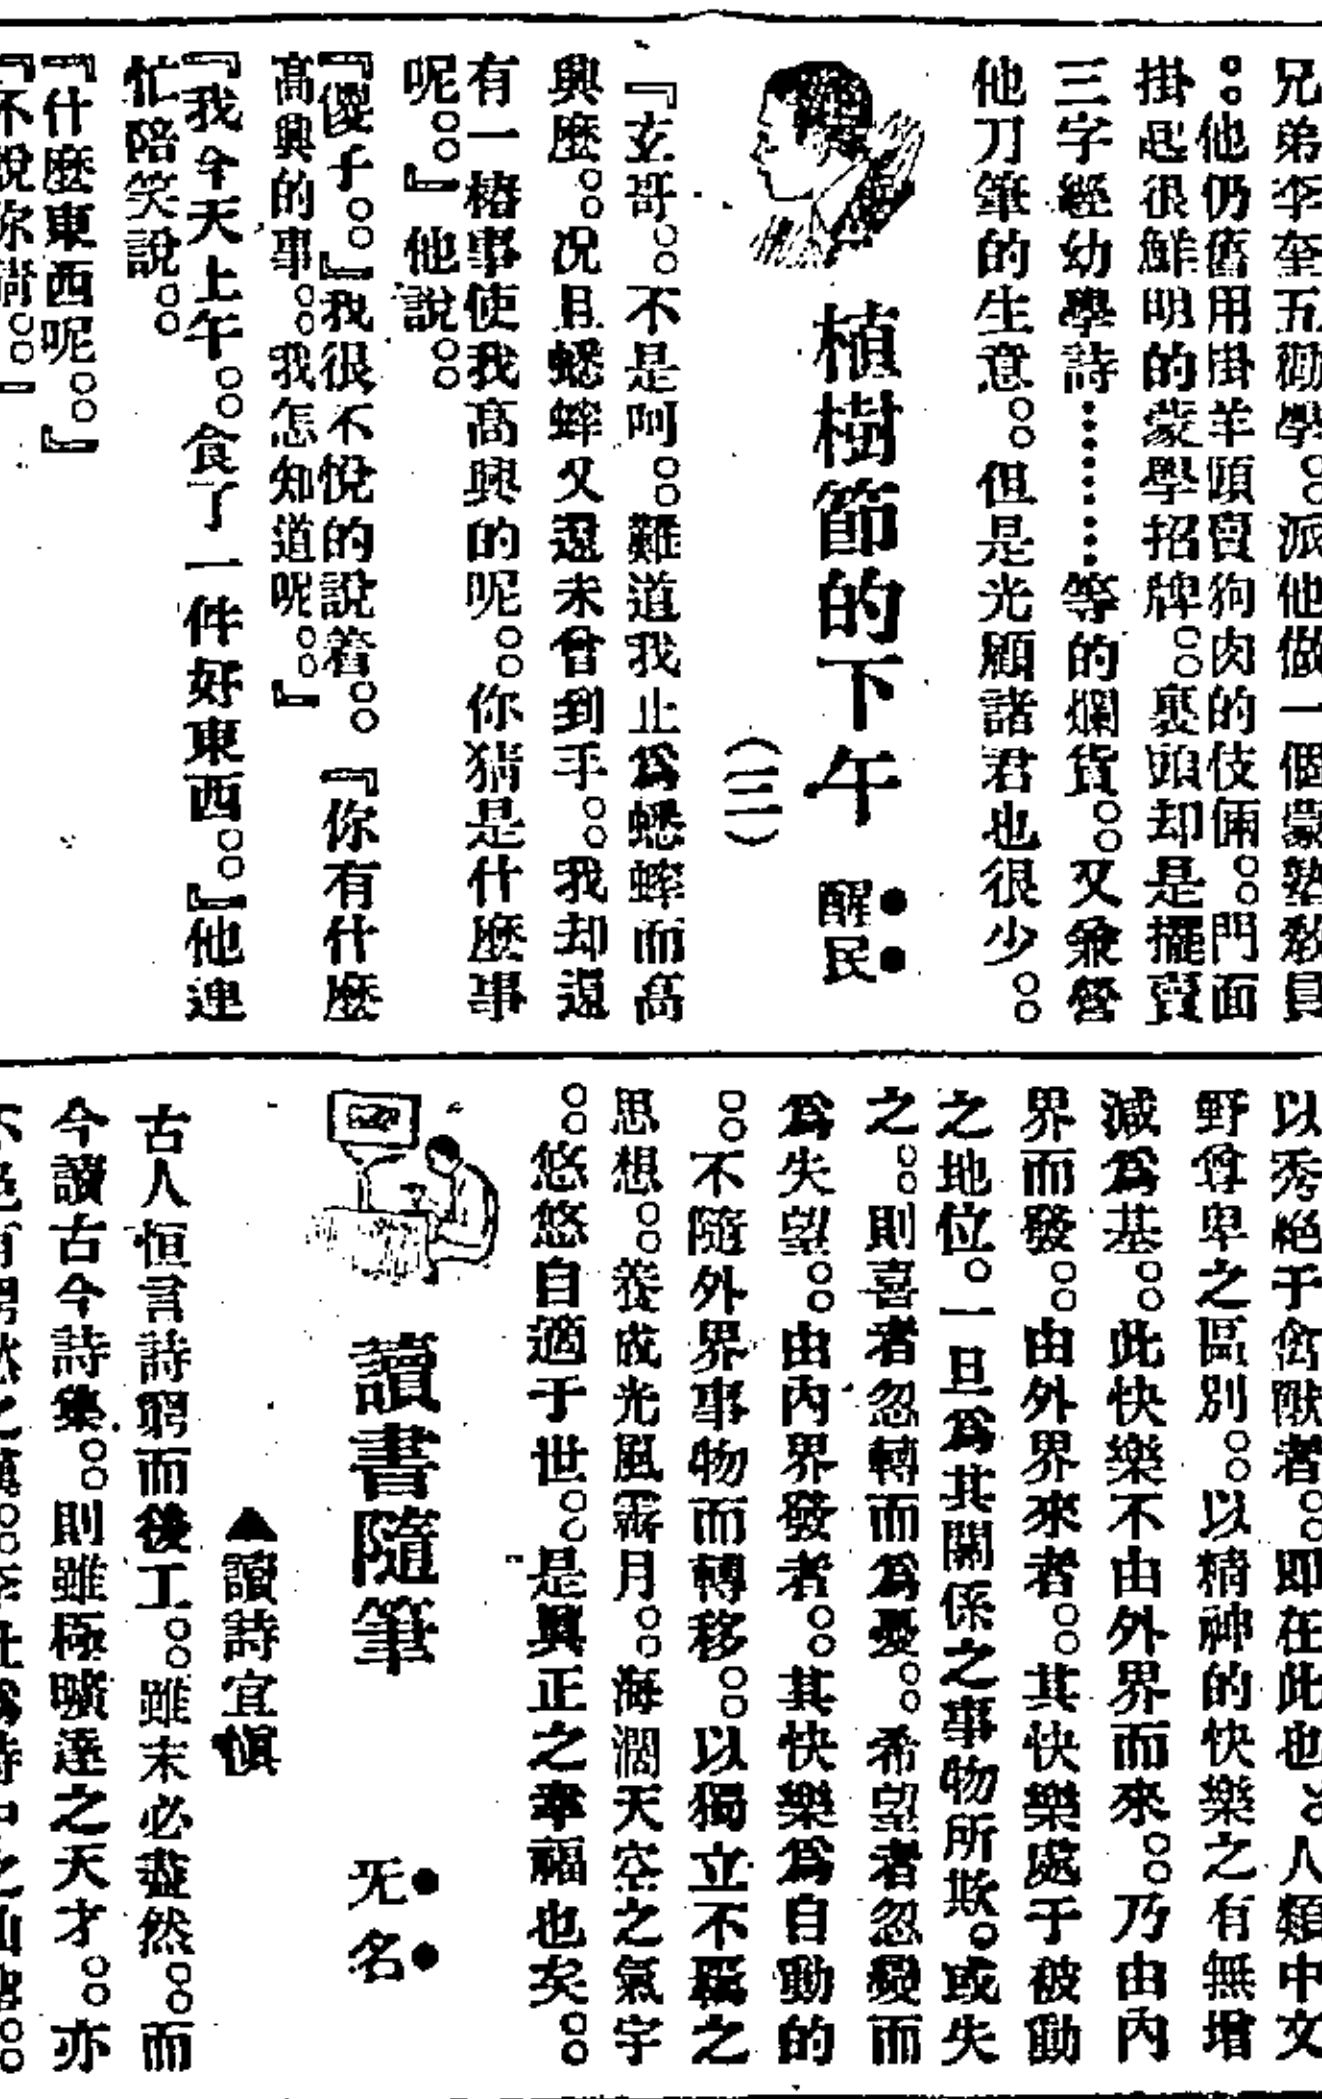 兄弟李奎五勸學。。派他做一個蒙塾教員
。。他仍舊用掛羊頭賣狗肉的伎倆。。門面
掛起很鮮明的蒙學招牌。。裏頭却是擺賣
三字經幼學詩⋯⋯⋯等的爛貨。。又兼營
他刀筆的生意。。但是光顧諸君也很少。。
植樹節的下午 醒民
(二)
『玄哥。。不是呵。。難道我止爲蟋蟀而高
興麼。。况且蟋蟀又還未曾到手。。我却還
有一樁事使我高興的呢。。你猜是什麼事
呢。。』他說。。
『傻子。。』我很不悅的說着。。『你有什麼
高興的事。。我怎知道呢。。』
『我今天上午。。食了一件好東西。。』他連
忙陪笑說。。
『什麼東西呢。。』
『不說你猜。。』
以秀絕于禽獸者。。即在此也。。人類中文
野尊卑之區別。。以精神的快樂之有無增
減爲基。。此快樂不由外界而來。。乃由內
界而發。。由外界來者。。其快樂處于被動
之地位。一旦爲其關係之事物所欺。或失
之。。則喜者忽轉而爲憂。。希望者忽變而
爲失望。。由內界發者。。其快樂爲自動的
。。不隨外界事物而轉移。。以獨立不羈之
思想。。養成光風霽月。。海濶天空之氣宇
。。悠悠自適于世。。是眞正之幸福也矣。。
讀書隨筆 无名
▲讀詩宜愼
古人恒言詩窮而後工。。雖未必盡然。。而
今讀古今詩集。。則雖極曠達之天才。。亦
不免有